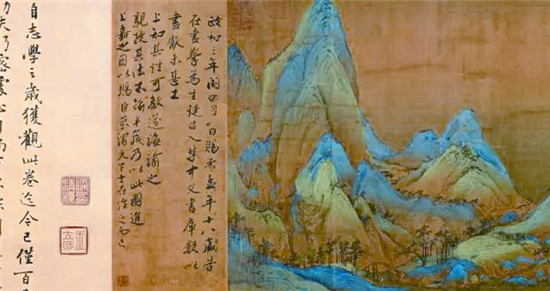 政和三年閏四月一日賜希孟年十八歲昔
在畫學為生徒召入禁中文書庫數以
畫獻未甚工
上知其性可教遂誨諭之
親授其法不踰半歲乃以此圖進
上嘉之因以賜臣京謂天下士在作之而已
自志學之歲獲觀此卷迄今已僅百
功夫巧密處心目尚有不